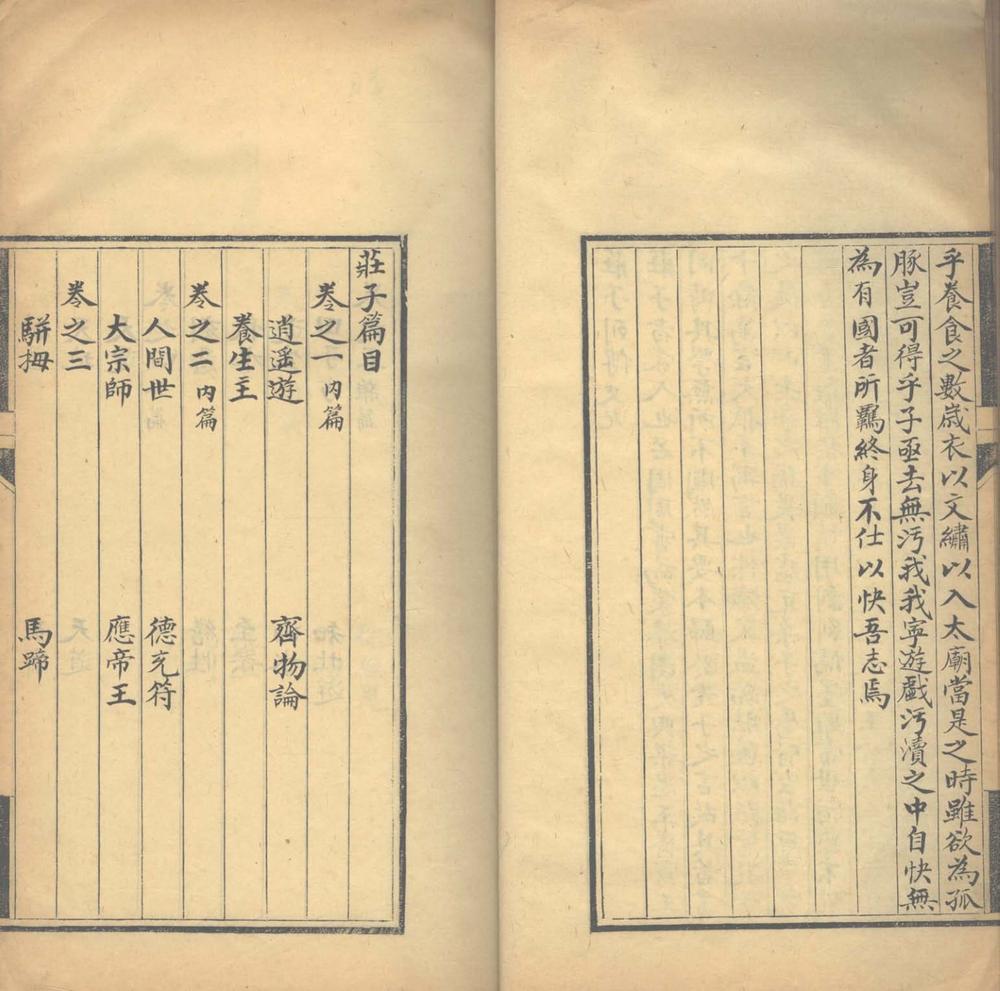 乎養食之數歲衣以文繡以入太廟當是之時雖欲為孤
豚豈可得乎子亟去無汚我我寧遊戲汚瀆之中自快無
為有國者所羈終身不仕以快吾志焉
莊子篇目
卷之一 內篇
逍遥遊 齊物論
養生主
卷之二 內篇
人間世 德充符
大宗師 應帝王
卷之三
駢拇 馬蹄